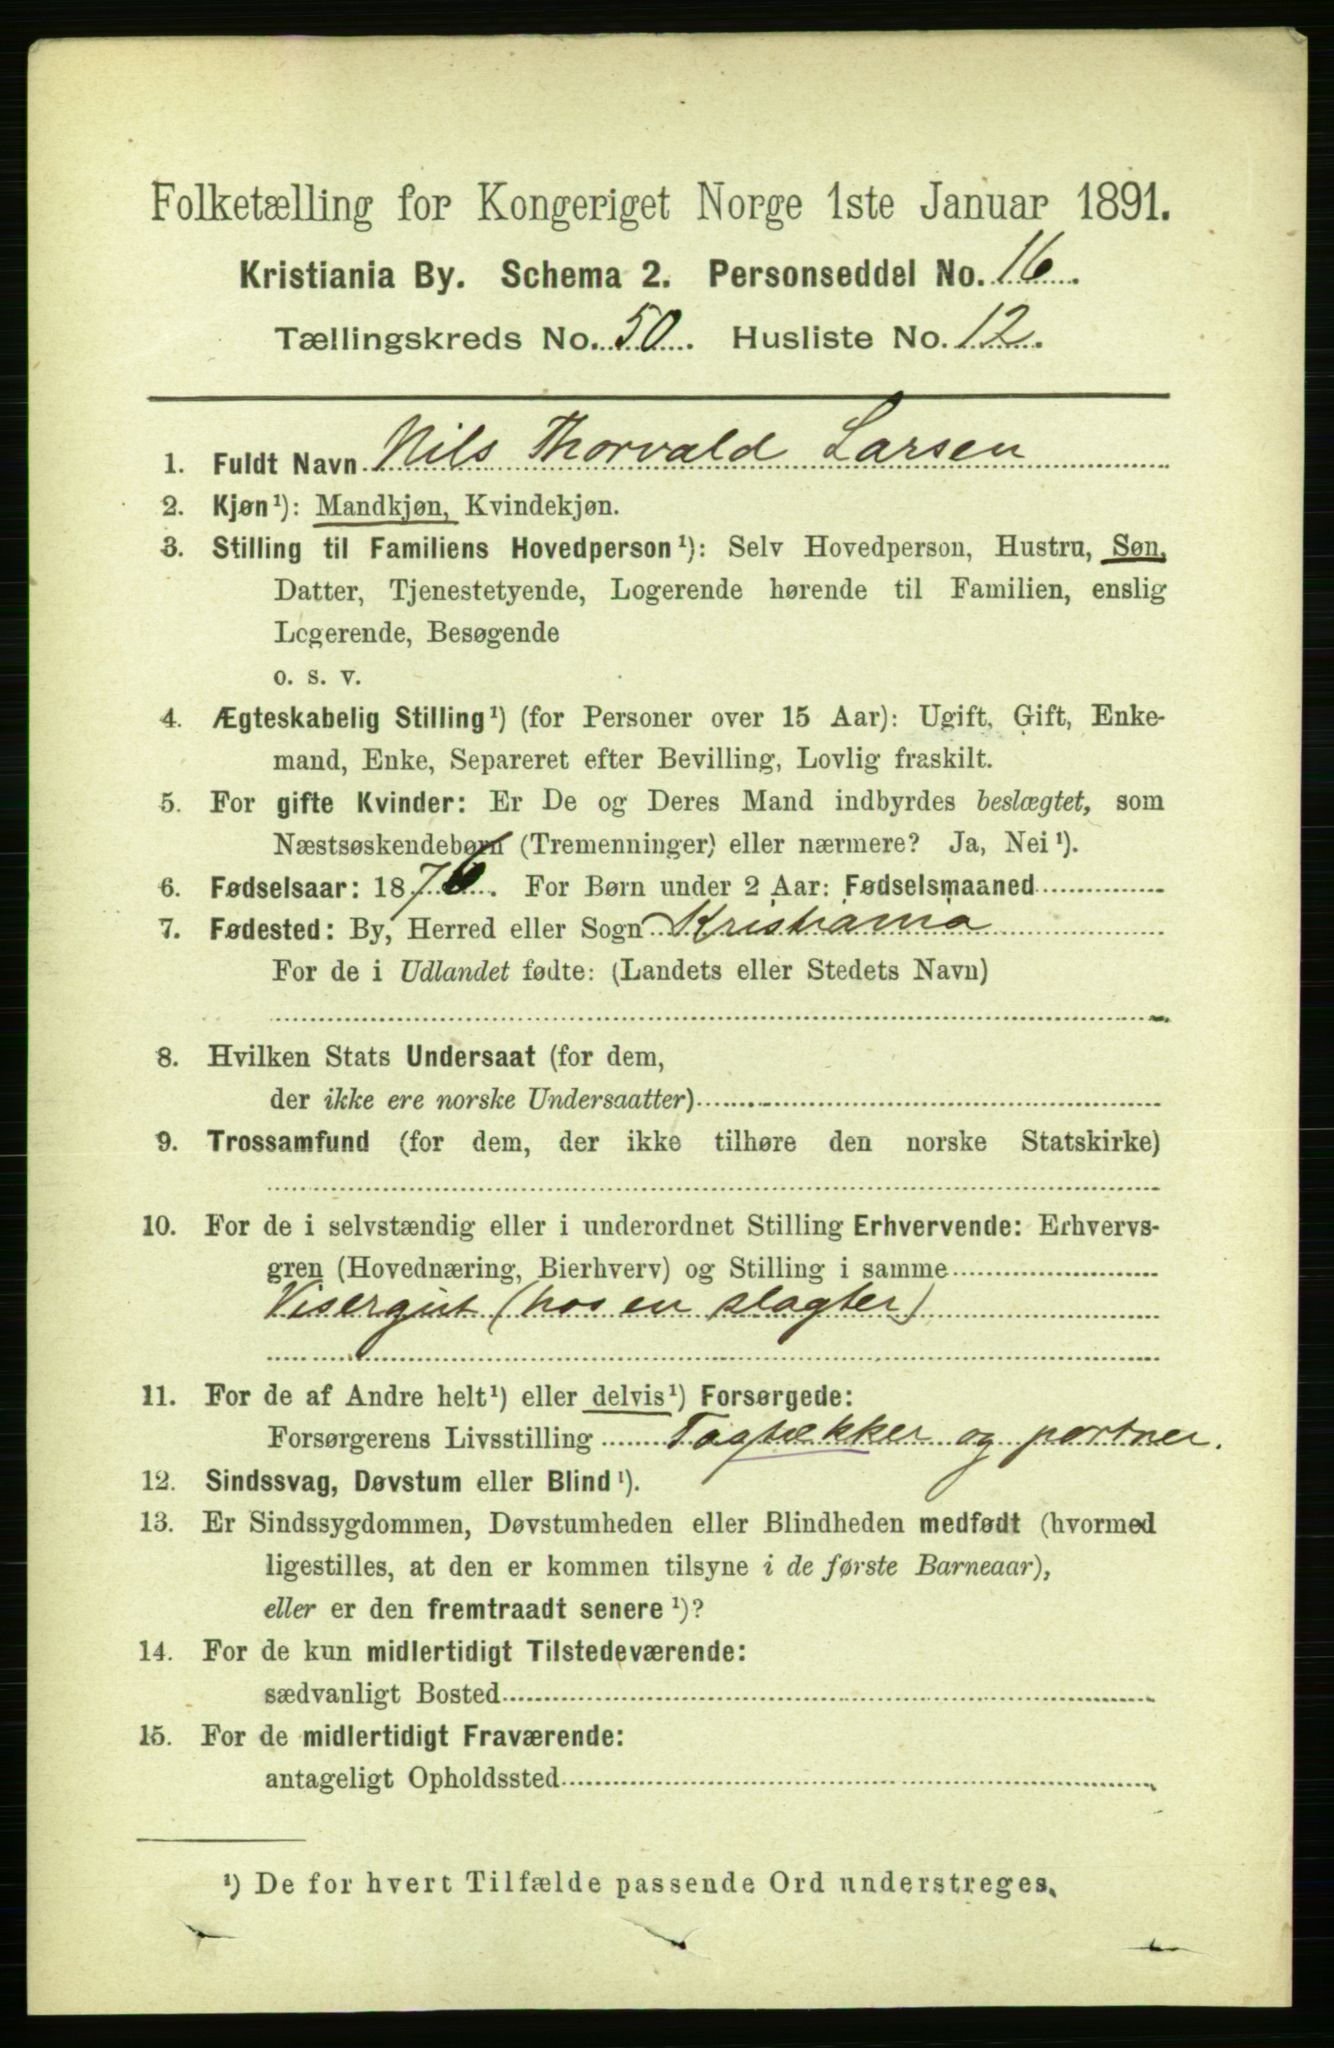 Folketælling for Kongeriget Norge 1ste Januar 1891.
Kristiania By. Schema 2. Personseddel No. 16.
Tællingskreds No. 50. Husliste No. 12.
1. Fuldt Navn Nils Thorvald Larsen
2. Kjøn¹): Mandkjøn, Kvindekjøn.
3. Stilling til Familiens Hovedperson¹): Selv Hovedperson, Hustru, Søn,
Datter, Tjenestetyende, Logerende hørende til Familien, enslig
Logerende, Besøgende
o. s. v.
4. Ægteskabelig Stilling¹) (for Personer over 15 Aar): Ugift, Gift, Enke-
mand, Enke, Separeret efter Bevilling, Lovlig fraskilt.
5. For gifte Kvinder: Er De og Deres Mand indbyrdes beslægtet, som
Næstsøskendebørn (Tremenninger) eller nærmere? Ja, Nei¹).
6. Fødselsaar: 1876. For Børn under 2 Aar: Fødselsmaaned
7. Fødested: By, Herred eller Sogn Kristiania
For de i Udlandet fødte: (Landets eller Stedets Navn)
8. Hvilken Stats Undersaat (for dem,
der ikke ere norske Undersaatter)
9. Trossamfund (for dem, der ikke tilhøre den norske Statskirke)
10. For de i selvstændig eller i underordnet Stilling Erhvervende: Erhvervs-
gren (Hovednæring, Bierhverv) og Stilling i samme
Visergut (hos en slagter)
11. For de af Andre helt¹) eller delvis¹) Forsørgede:
Forsørgerens Livsstilling Tagtækker og portner.
12. Sindssvag, Døvstum eller Blind¹).
13. Er Sindssygdommen, Døvstumheden eller Blindheden medfødt (hvormed
ligestilles, at den er kommen tilsyne i de første Barneaar),
eller er den fremtraadt senere¹)?
14. For de kun midlertidigt Tilstedeværende:
sædvanligt Bosted
15. For de midlertidigt Fraværende:
antageligt Opholdssted
¹) De for hvert Tilfælde passende Ord understreges.